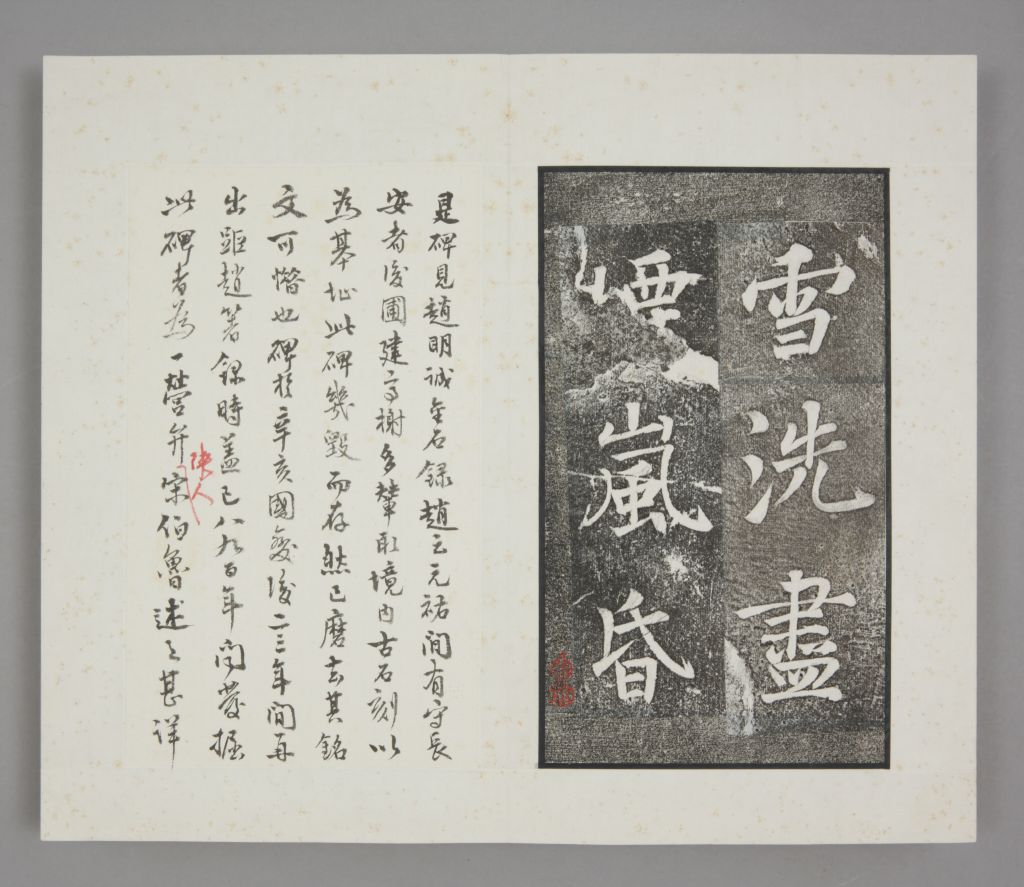 雪洗盡
嵐昏
是碑見趙明誠金石錄趙云元祐間有守長
安者後圃建亭榭多輦取境內古石刻以
為基址此碑幾毀而存然已磨去其銘
文可惜也碑於辛亥國變後二三年間再
出距趙著錄時蓋已八九百年聞發掘
此碑者為一營弁陝人宋伯魯述之甚詳